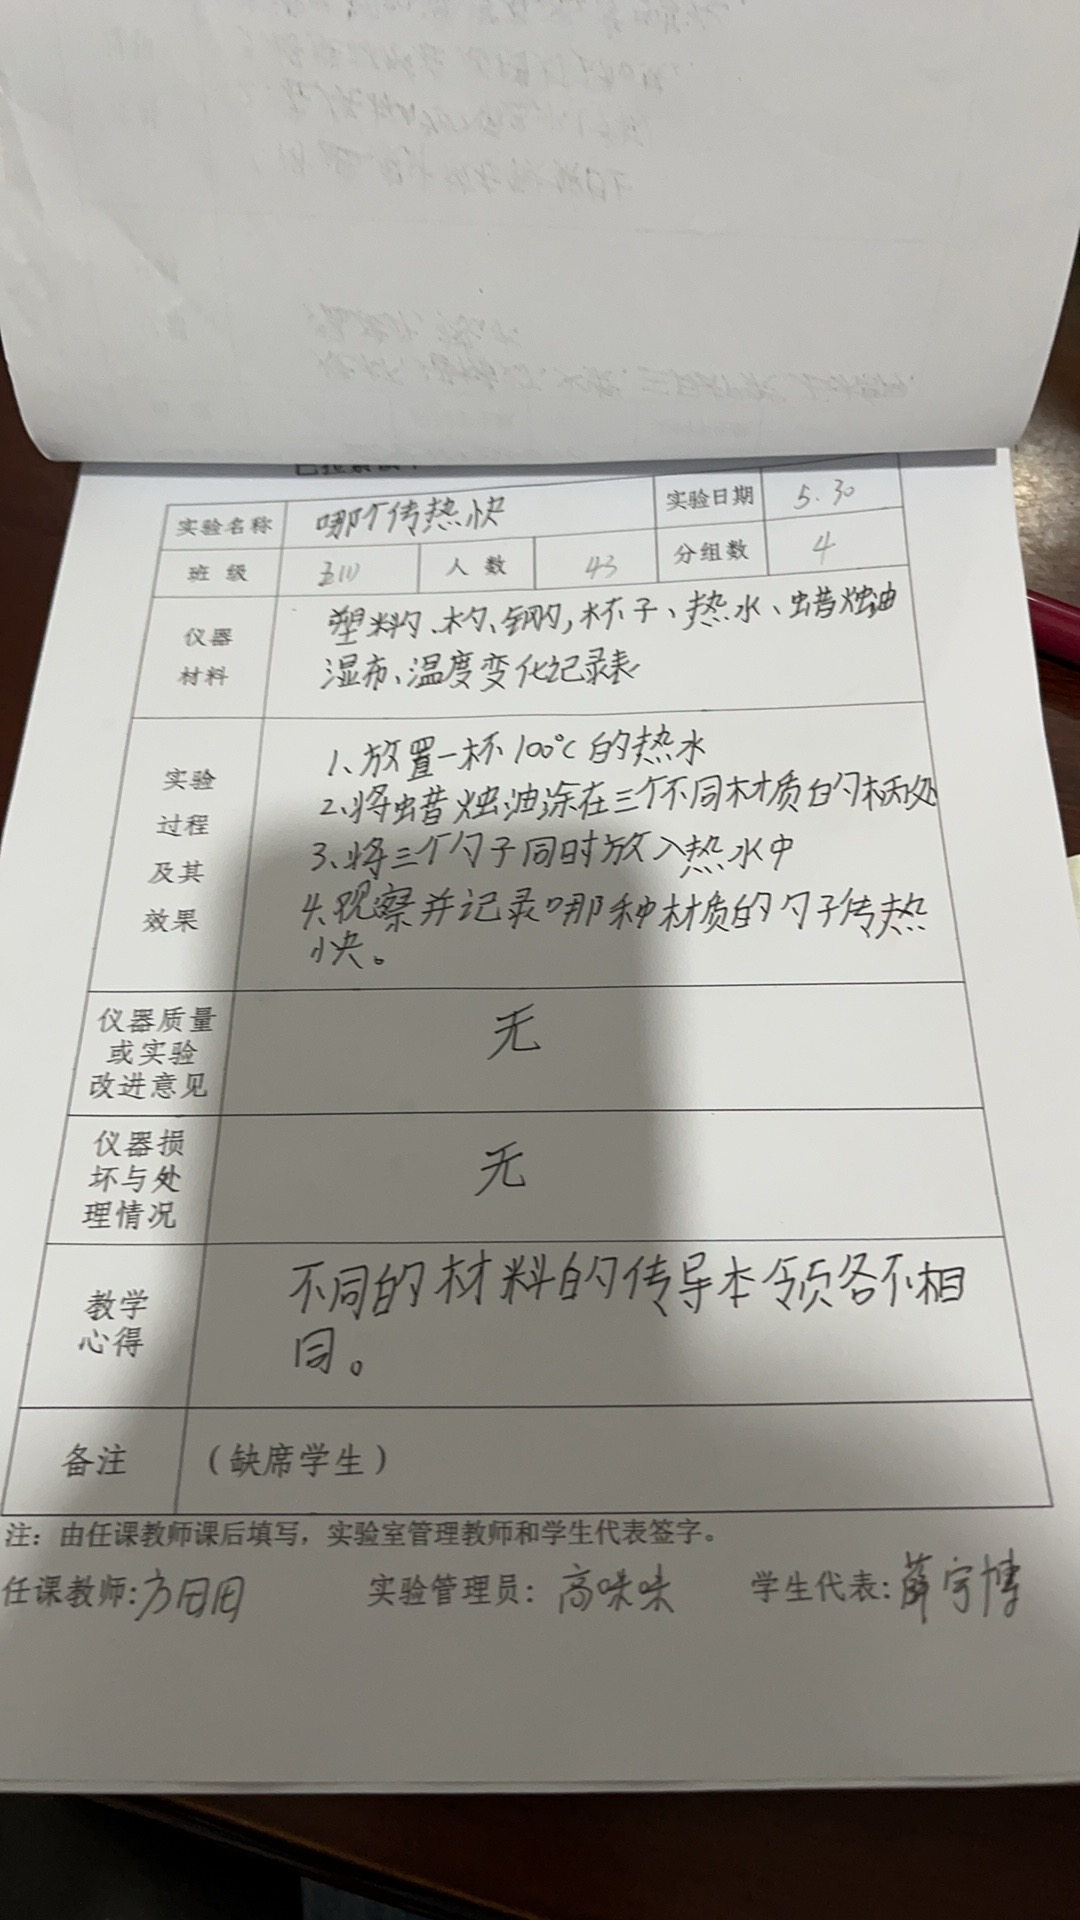 实验名称 哪个传热快 实验日期 5.30
班级 五(1) 人数 43 分组数 4
仪器材料
塑料勺、木勺、钢勺,杯子、热水、蜡烛油
湿布、温度变化记录表
实验过程及其效果
1、放置一杯100℃的热水
2、将蜡烛油涂在三个不同材质的勺柄处
3、将三个勺子同时放入热水中
4、观察并记录哪种材质的勺子传热
快。
仪器质量或实验改进意见 无
仪器损坏与处理情况 无
教学心得
不同的材料的传导本领各不相
同。
备注 (缺席学生)
注:由任课教师课后填写,实验室管理教师和学生代表签字。
任课教师:方田田 实验管理员:高咪咪 学生代表:薛宇博